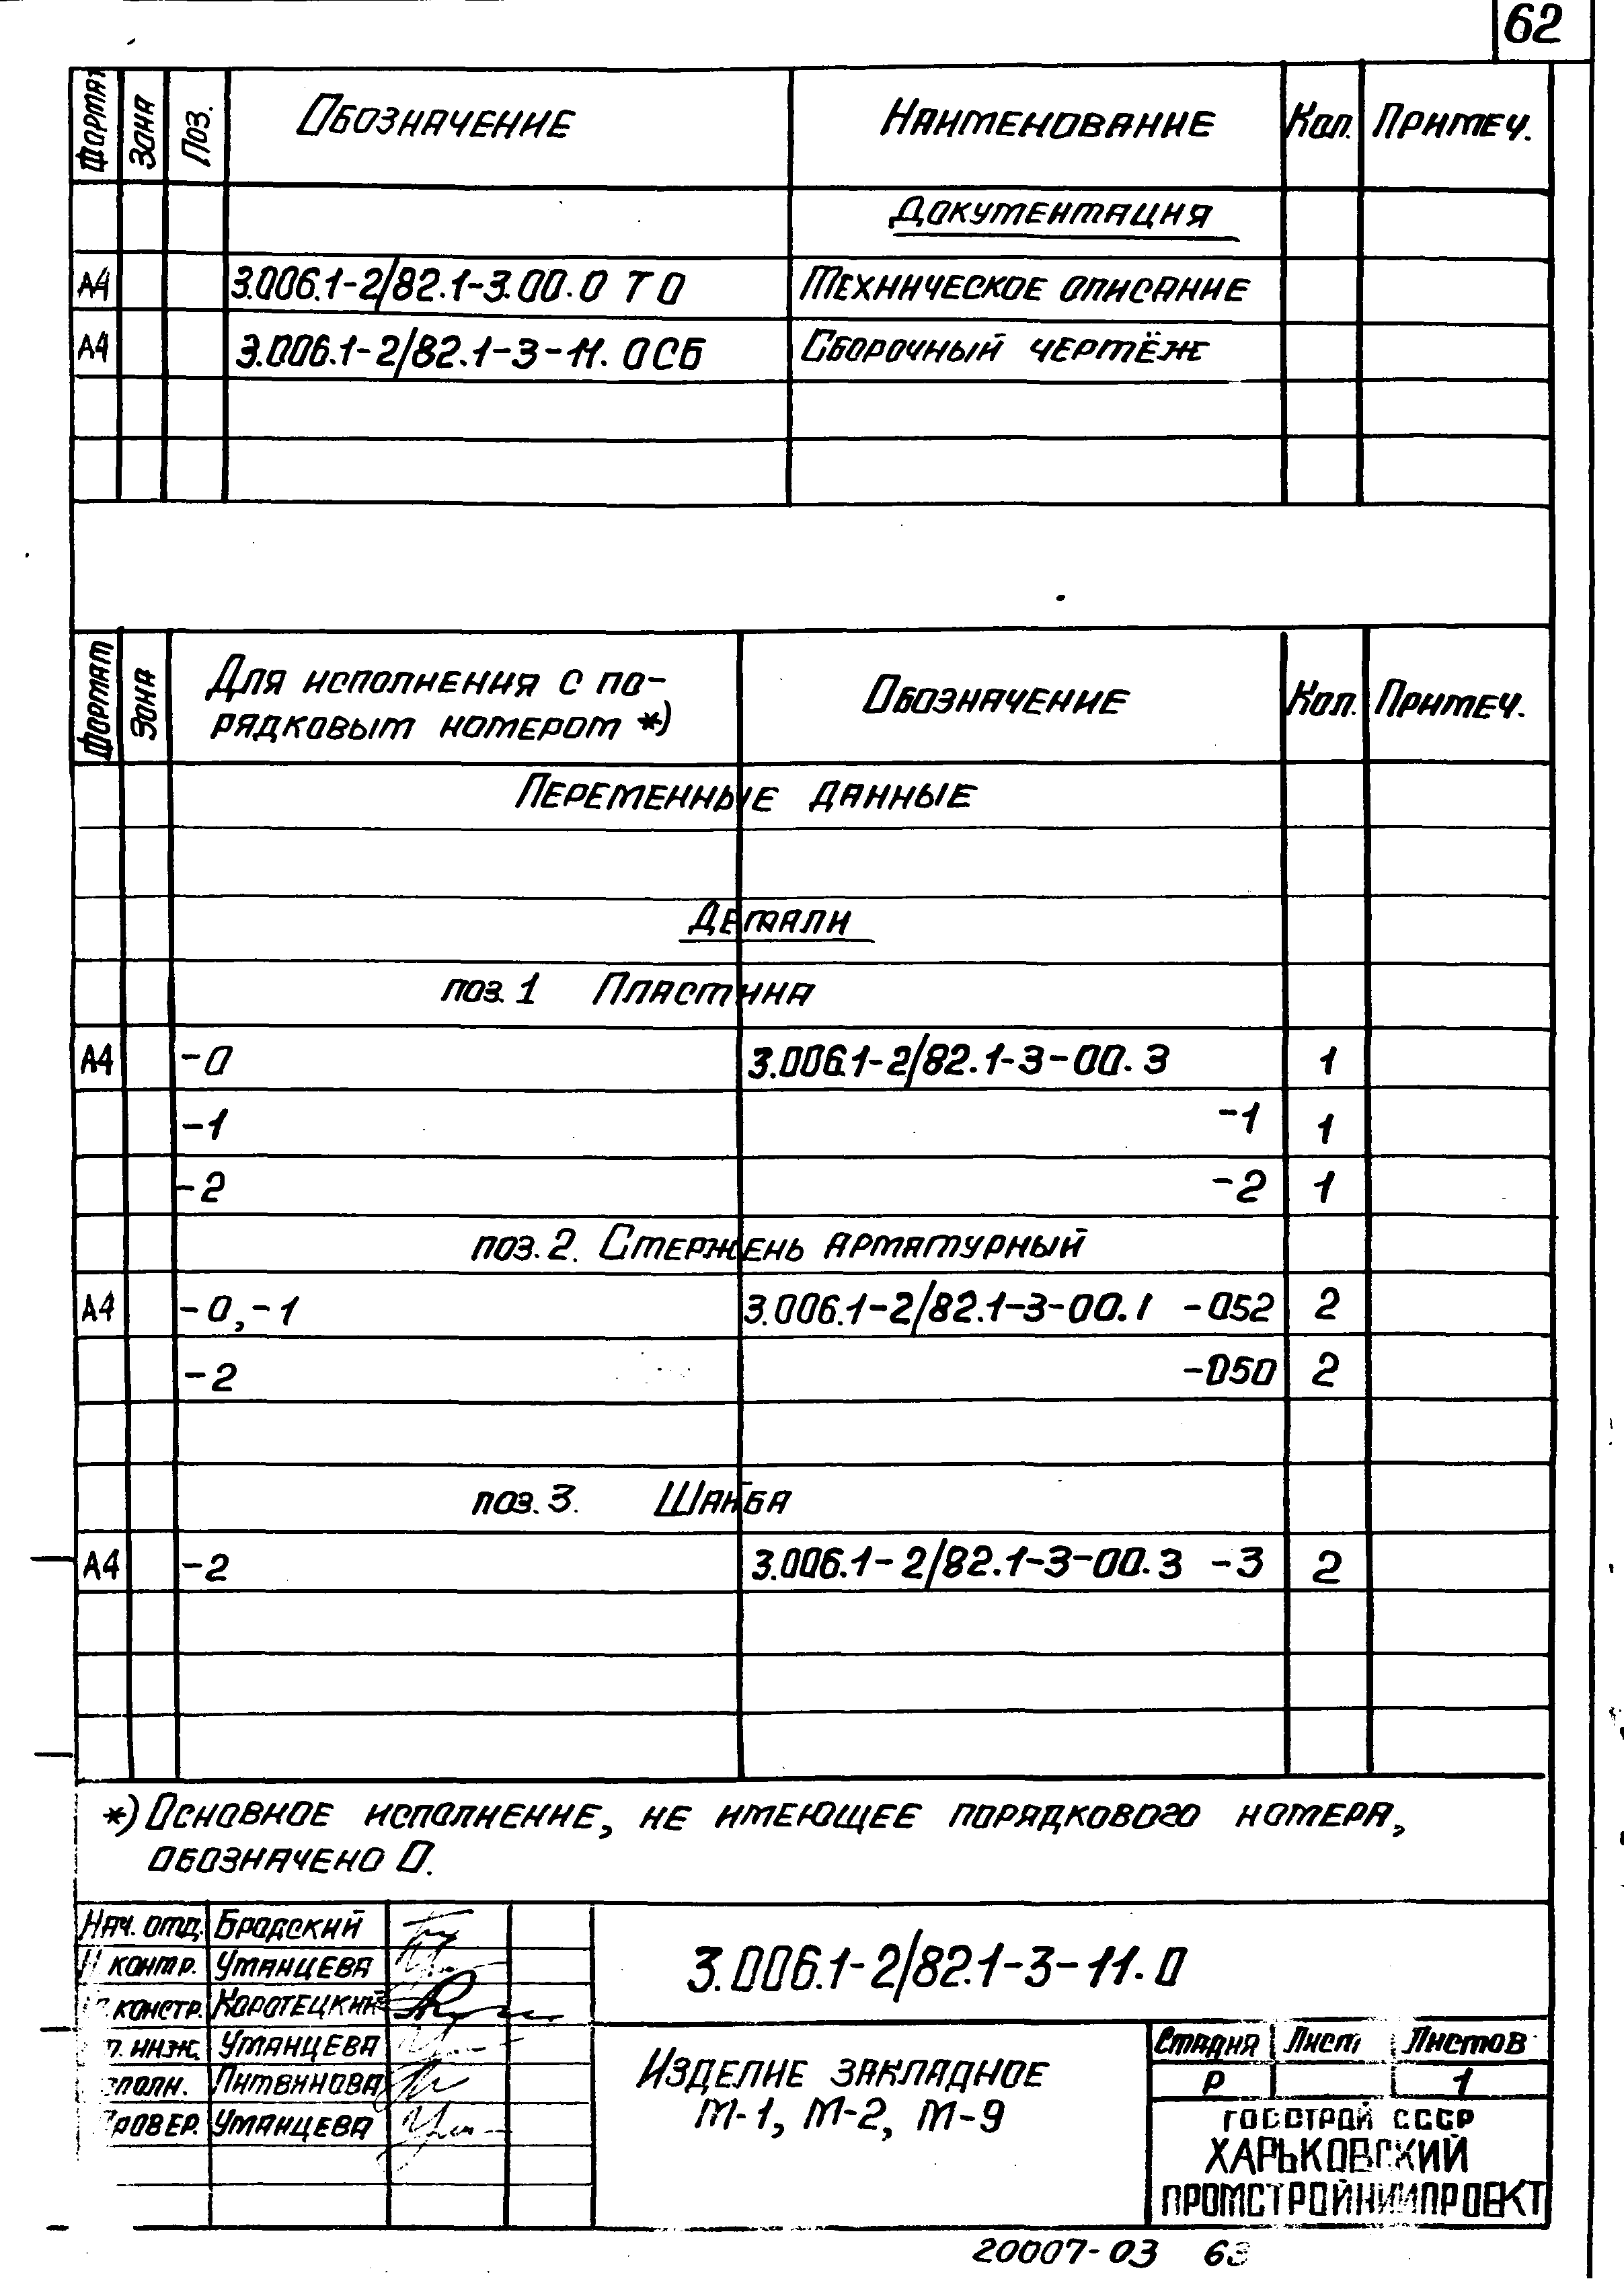 62
Формат Зона Поз. Обозначение Наименование Кол. Примеч.
Документация
А4 3.006.1-2/82.1-3.00.0 ТО Техническое описание
А4 3.006.1-2/82.1-3-11.0СБ Сборочный чертёж
Формат Зона Для исполнения с по-
рядковым номером *) Обозначение Кол. Примеч.
Переменные данные
Детали
поз. 1 Пластина
А4 -0 3.006.1-2/82.1-3-00.3 1
-1 -1 1
-2 -2 1
поз. 2. Стержень арматурный
А4 -0, -1 3.006.1-2/82.1-3-00.1 -052 2
-2 -050 2
поз. 3. Шайба
А4 -2 3.006.1-2/82.1-3-00.3 -3 2
*) Основное исполнение, не имеющее порядкового номера,
обозначено 0.
Нач. отд. Бродский
Н контр. Уманцева
констр. Коротецкий
инж. Уманцева
Литвинова
Провер. Уманцева
3.006.1-2/82.1-3-11.0
Изделие закладное
М-1, М-2, М-9
Стадия Лист Листов
Р 1
ГОССТРОЙ СССР
ХАРЬКОВСКИЙ
ПРОМСТРОЙНИИПРОЕКТ
20007-03 63